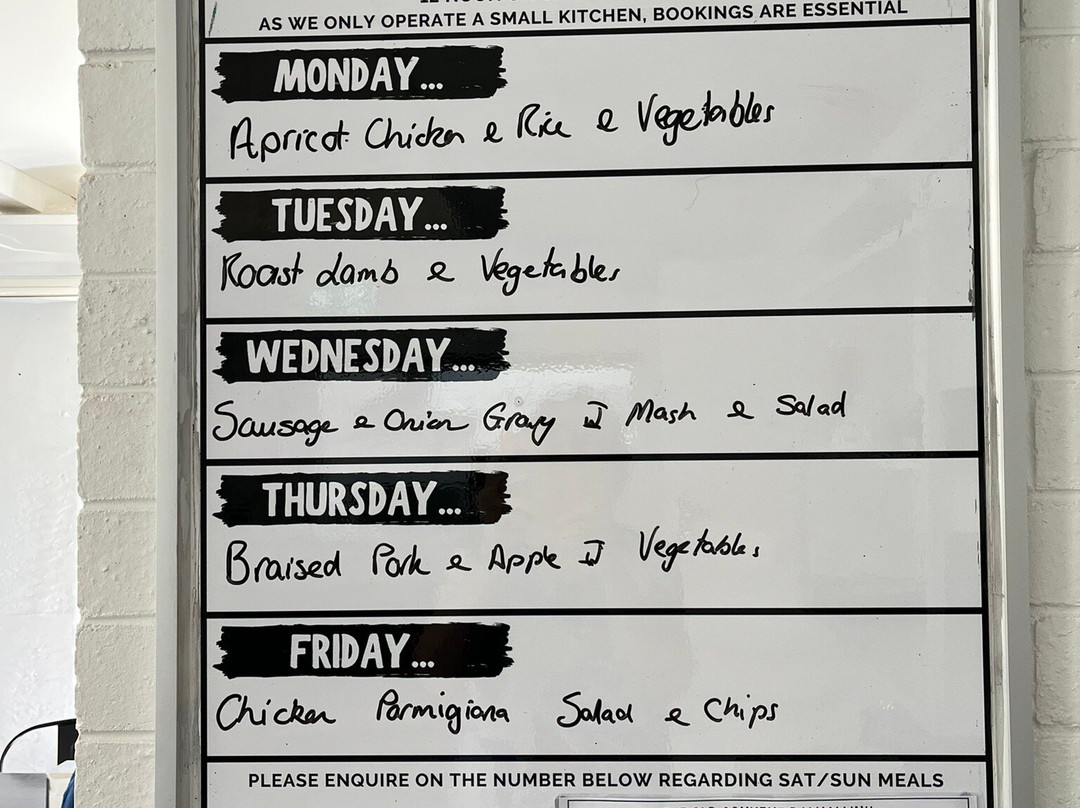 AS WE ONLY OPERATE A SMALL KITCHEN, BOOKINGS ARE ESSENTIAL
MONDAY...
Apricot Chicken & Rice & Vegetables
TUESDAY...
Roast Lamb & Vegetables
WEDNESDAY...
Sausage & Onion Gravy w Mash & Salad
THURSDAY...
Braised Pork & Apple w Vegetables
FRIDAY...
Chicken Parmigiana Salad & Chips
PLEASE ENQUIRE ON THE NUMBER BELOW REGARDING SAT/SUN MEALS